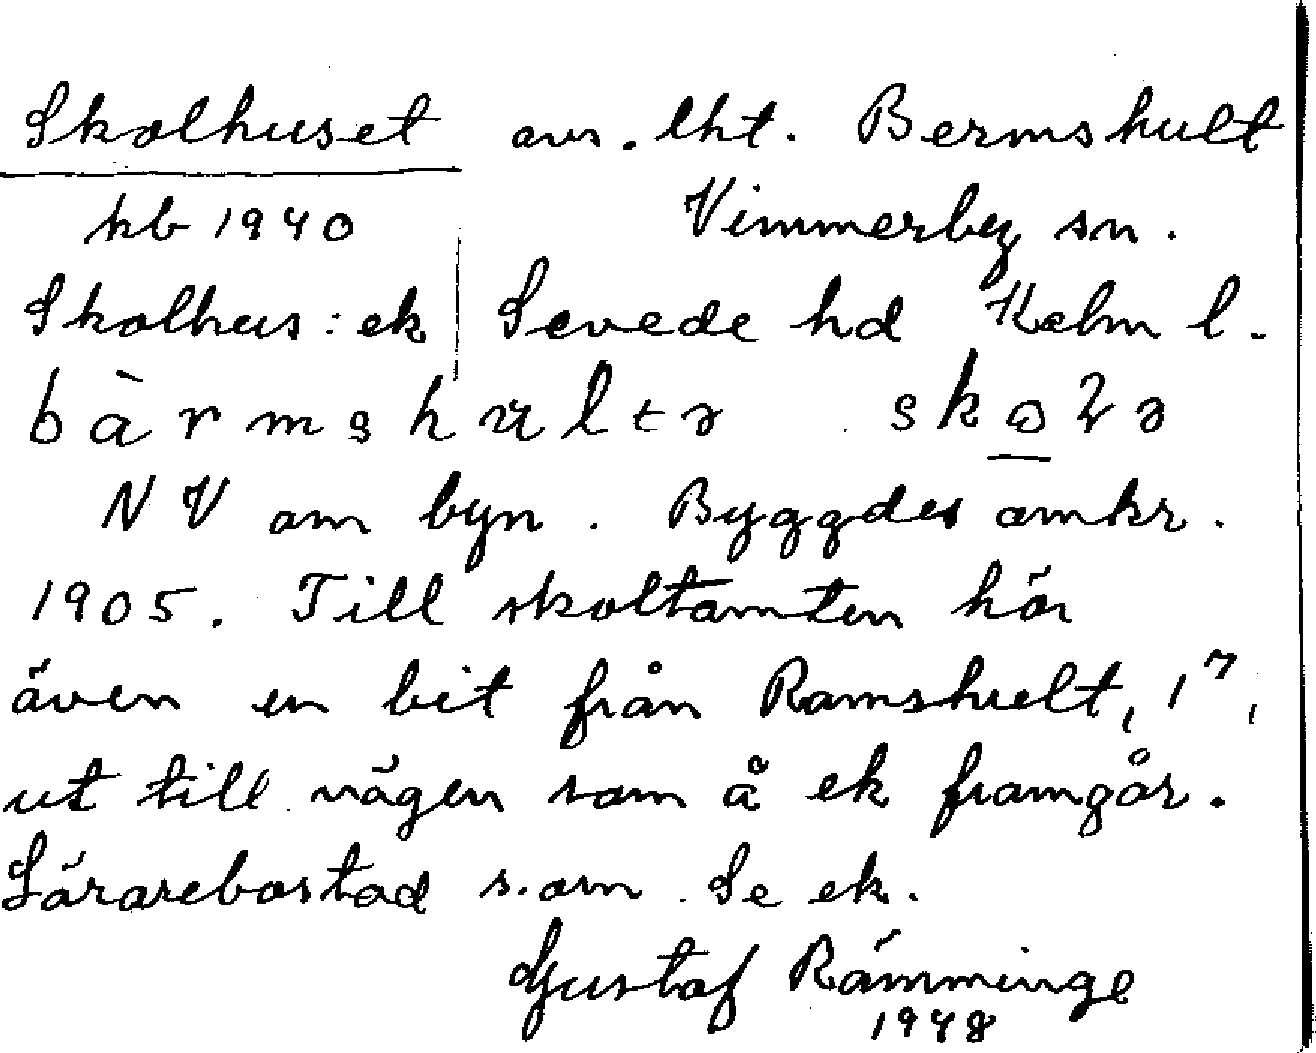 Skolhuset avs. lht. Bermshult
hb 1940 Vimmerby sn.
Skolhus: ek Sevede hd Kalm l.
NV om byn. Byggdes omkr.
1905. Till skoltomten hör
även en bit från Ramshult, 1⁷,
ut till vägen som å ek framgår.
Lärarebostad s. om. Se ek.
Gustaf Rämminge
1948